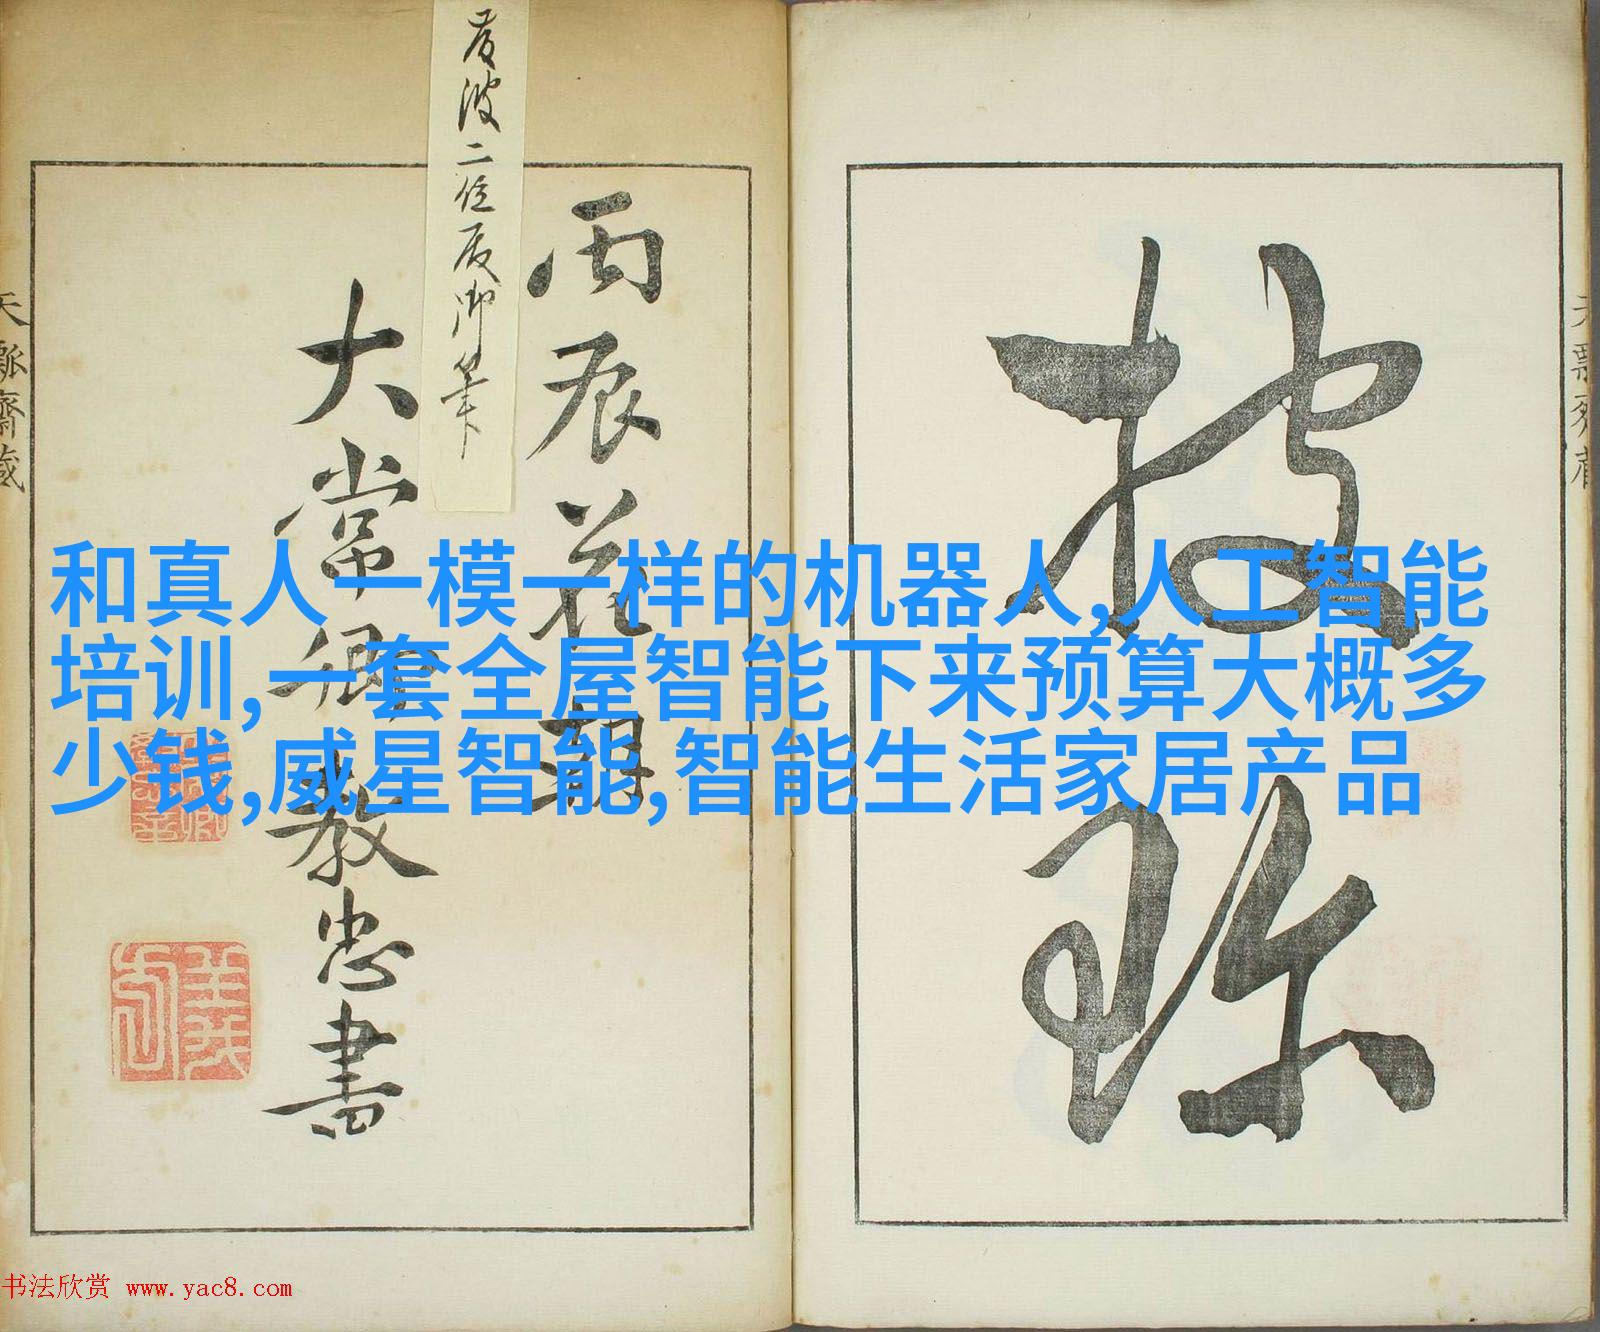 披
珎
丙辰花朝
大常卿敎忠書
二位
御筆
天瓢齋藏
和真人一模一样的机器人,人工智能
培训,一套全屋智能下来预算大概多
少钱,威星智能,智能生活家居产品
书法欣赏 www.yac8.com